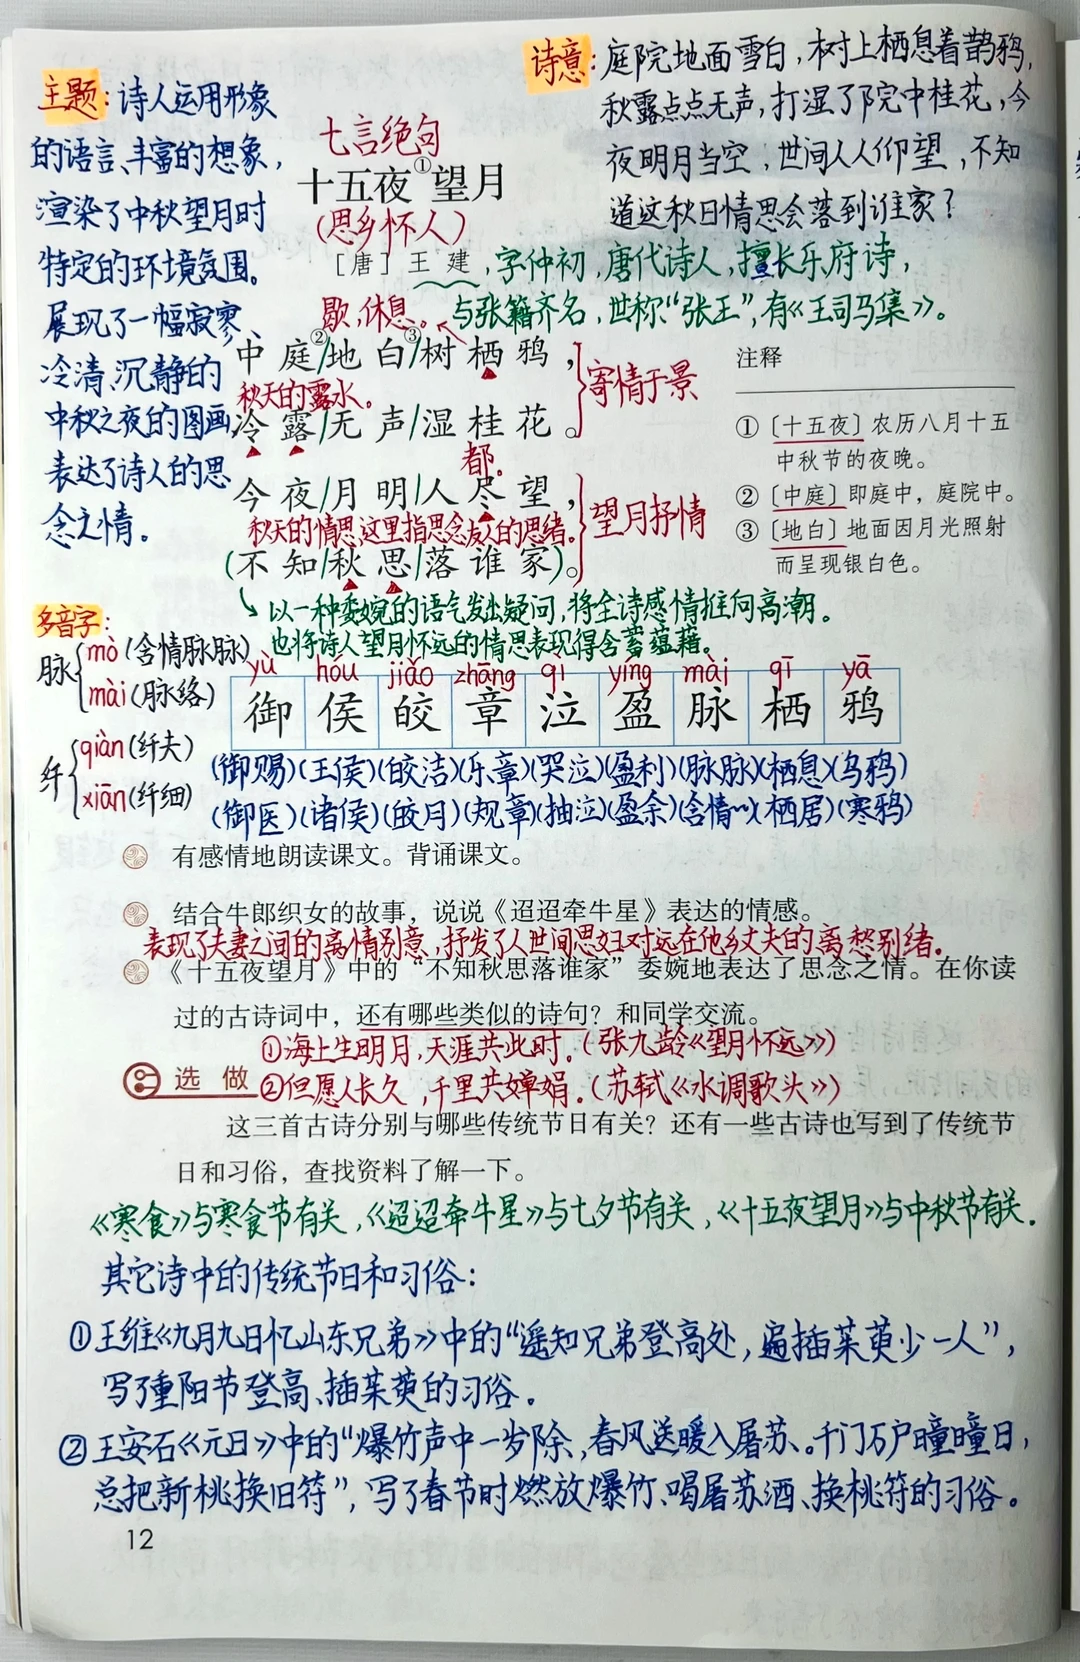 主题：诗人运用形象
的语言、丰富的想象，
渲染了中秋望月时
特定的环境氛围。
展现了一幅寂寥、
冷清、沉静的
中秋之夜的图画，
表达了诗人的思
念之情。
诗意：庭院地面雪白，树上栖息着鹊鸦，
秋露点点无声，打湿了院中桂花，今
夜明月当空，世间人人仰望，不知
道这秋日情思会落到谁家？
七言绝句
十五夜①望月
（思乡怀人）
［唐］王 建，字仲初，唐代诗人，擅长乐府诗，
与张籍齐名，世称“张王”，有《王司马集》。
歇，休息。
中庭②/地白③/树栖鸦，
秋天的露水。
冷露/无声/湿桂花。
寄情于景
都。
今夜/月明/人尽望，
秋天的情思，这里指思念友人的思绪。
（不知/秋思/落谁家）。
望月抒情
以一种委婉的语气发出疑问，将全诗感情推向高潮。
也将诗人望月怀远的情思表现得含蓄蕴藉。
注释
①〔十五夜〕农历八月十五
中秋节的夜晚。
②〔中庭〕即庭中，庭院中。
③〔地白〕地面因月光照射
而呈现银白色。
多音字：
脉 mò（含情脉脉）
mài（脉络）
纤 qiàn（纤夫）
xiān（纤细）
yù hóu jiǎo zhāng qì yíng mài qī yā
御 侯 皎 章 泣 盈 脉 栖 鸦
（御赐）（王侯）（皎洁）（乐章）（哭泣）（盈利）（脉脉）（栖息）（乌鸦）
（御医）（诸侯）（皎月）（规章）（抽泣）（盈余）（含情~~）（栖居）（寒鸦）
有感情地朗读课文。背诵课文。
结合牛郎织女的故事，说说《迢迢牵牛星》表达的情感。
表现了夫妻之间的离情别意，抒发了人世间思妇对远在他乡丈夫的离愁别绪。
《十五夜望月》中的“不知秋思落谁家”委婉地表达了思念之情。在你读
过的古诗词中，还有哪些类似的诗句？和同学交流。
①海上生明月，天涯共此时。（张九龄《望月怀远》）
选做
②但愿人长久，千里共婵娟。（苏轼《水调歌头》）
这三首古诗分别与哪些传统节日有关？还有一些古诗也写到了传统节
日和习俗，查找资料了解一下。
《寒食》与寒食节有关，《迢迢牵牛星》与七夕节有关，《十五夜望月》与中秋节有关．
其它诗中的传统节日和习俗：
①王维《九月九日忆山东兄弟》中的“遥知兄弟登高处，遍插茱萸少一人”，
写了重阳节登高、插茱萸的习俗。
②王安石《元日》中的“爆竹声中一岁除，春风送暖入屠苏。千门万户曈曈日，
总把新桃换旧符”，写了春节时燃放爆竹、喝屠苏酒、换桃符的习俗。
12